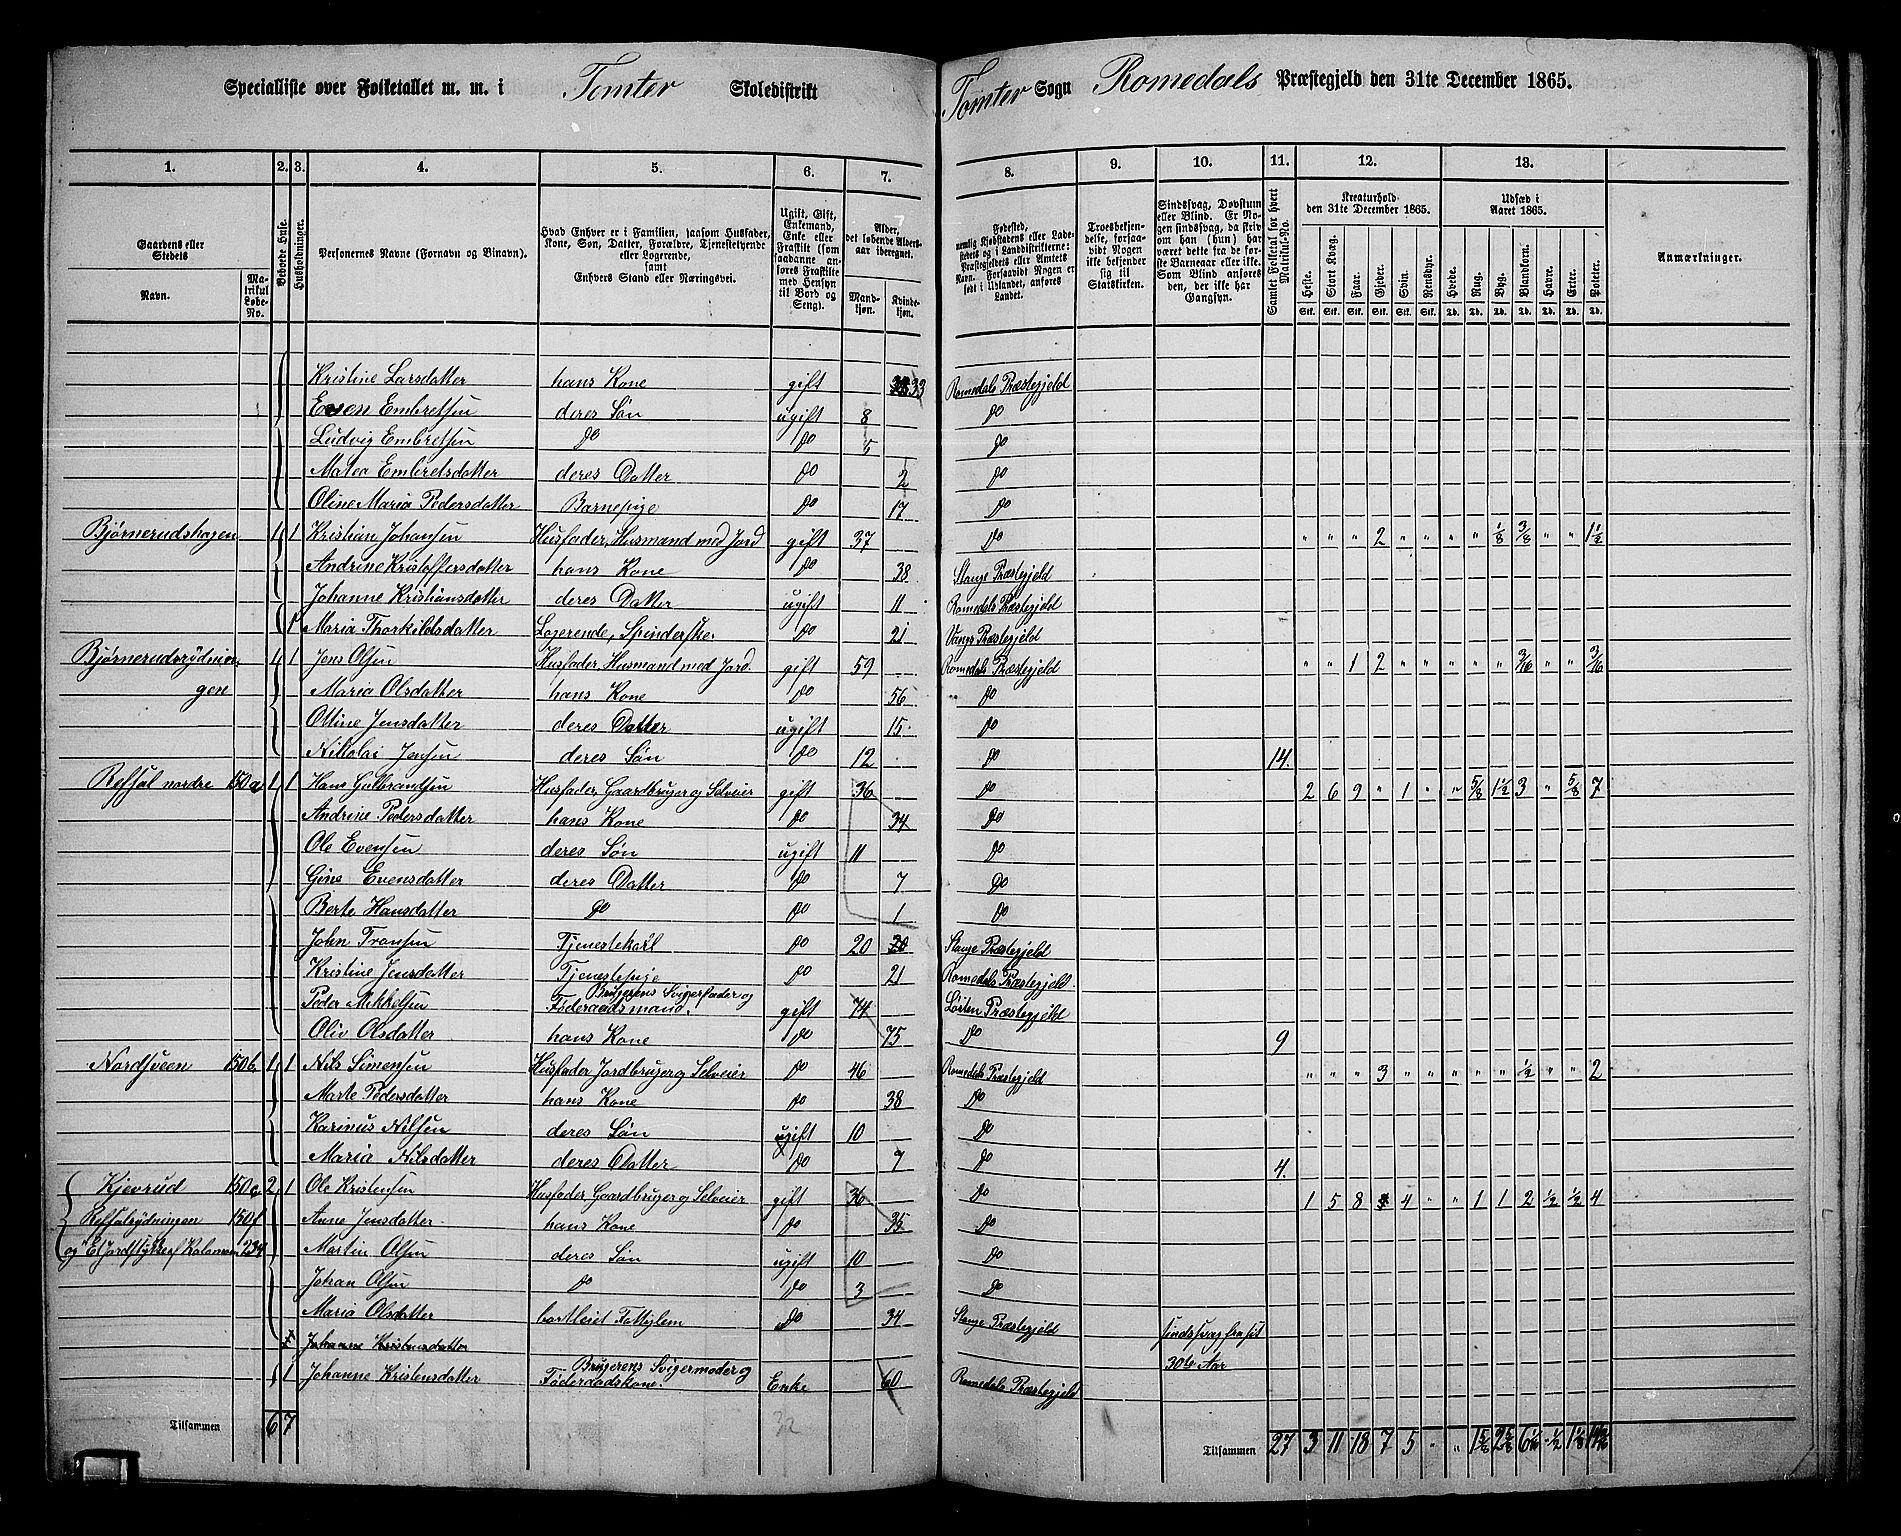 Specialliste over Folketallet m. m. i Tomter Skoledistrikt Tomter Sogn Romedals Præstegjeld den 31te December 1865.
1. 2. 3. 4. 5. 6. 7. 8. 9. 10. 11. 12. 13.
Gaardens eller Stedets Navn. Matrikul Løbe-No. Beboede Huse. Husholdninger. Personernes Navne (Fornavn og Binavn). Hvad Enhver er i Familien, saasom Husfader, Kone, Søn, Datter, Forældre, Tjenestetyende eller Logerende, samt Enhvers Stand eller Næringsvei. Ugift, Gift, Enkemand, Enke eller Fraskilt (som saadanne anføres Fraskilte med Hensyn til Bord og Seng). Alder, det løbende Aldersaar iberegnet. Mandkjøn. Kvindekjøn.
Fødested, nemlig Kjøbstadens eller Ladestedets og i Landdistrikterne: Præstegjeldets eller Amtets Navn. Forsaavidt Nogen er født i Udlandet, anføres Landet. Troesbekjendelse, forsaavidt Nogen ikke bekjender sig til Statskirken. Sindssvag, Døvstum eller Blind. Er Nogen sindssvag, da skriv om han (hun) har været dette fra de første Barneaar eller ikke. Som Blind anføres den, der ikke har Gangsyn. Samlet Folketal for hvert Matrikul-No. Kreaturhold den 31te December 1865. Udsæd i Aaret 1865. Anmærkninger.
Heste. Stort Kvæg. Faar. Gjeder. Svin. Rensdyr. Hvede. Rug. Byg. Blandkorn. Havre. Erter. Poteter.
Stk. Stk. Stk. Stk. Stk. Stk. Td. Td. Td. Td. Td. Td. Td.
Kristine Larsdatter hans Kone gift 33 Romedals Præstegjeld
Even Embretsen deres Søn ugift 8 do
Ludvig Embretsen do do 5 do
Matea Embretsdatter deres Datter do 2 do
Oline Maria Pedersdatter Barnepige do 17 do
Bjørnerudshagen 1 1 Kristian Johansen Husfader, Husmand med Jord gift 37 do " " " 2 " " " " 1/8 3/8 " " 1 1/2
Andrine Kristoffersdatter hans Kone do 38 Stange Præstegjeld
Johanne Kristiansdatter deres Datter ugift 11 Romedals Præstegjeld
1 Maria Thorkildsdatter Logerende, Spinderske do 21 Vangs Præstegjeld
Bjørnerudsrydnin- 1 1 Jens Olsen Husfader, Husmand med Jord gift 59 Romedals Præstegjeld " " 1 2 " " " " " 3/16 " " 3/16
gen Maria Olsdatter hans Kone do 56 do
Oline Jensdatter deres Datter ugift 15 do
Nikolai Jensen deres Søn do 12 do 14.
Refsal nordre 150a 1 1 Hans Gulbrandsen Husfader, Gaardbruger og Selveier gift 36 do 2 6 9 " 1 " " 5/8 1 1/2 3 " 5/8 7
Andrine Pedersdatter hans Kone do 34 do
Ole Evensen deres Søn ugift 11 do
Gine Evensdatter deres Datter do 7 do
Berte Hansdatter do do 1 do
John Tronsen Tjenestekarl do 20 Stange Præstegjeld
Kristine Jensdatter Tjenestepige do 21 Romedals Præstegjeld
Peder Mikkelsen Brugerens Svigerfader og Føderaadsmand. gift 74 Løiten Præstegjeld
Oliv Olsdatter hans Kone do 75 do 9
Nordsveen 150b 1 1 Nils Simensen Husfader Jordbruger og Selveier do 46 Romedals Præstegjeld " " " 3 " " " " " 1/2 " " 2
Marte Pedersdatter hans Kone do 38 do
Karinus Nilsen deres Søn ugift 10 do
Maria Nilsdatter deres Datter do 7 do 4.
Kjevrud 150c 2 1 Ole Kristensen Husfader, Gaardbruger og Selveier gift 36 do 1 5 8 4 " " 1 1 2 1/2 1/2 4
Refsalrydningen 150f Anne Jensdatter hans Kone do 35 do
og Et Jordstykke af Kalamoen 234 Martin Olsen deres Søn ugift 10 do
Johan Olsen do do 3 do
Maria Olsdatter bortleiet Fattiglem do 34 Stange Præstegjeld sindssvag fra sit
Johanne Kristensdatter 30te Aar
1 Johanne Kristensdatter Brugerens Svigermoder og Føderaadskone. Enke 60 Romedals Præstegjeld
Tilsammen 6 7 32 Tilsammen 27 3 11 18 7 5 " " 1 5/8 2 5/8 1/2 1 1/8